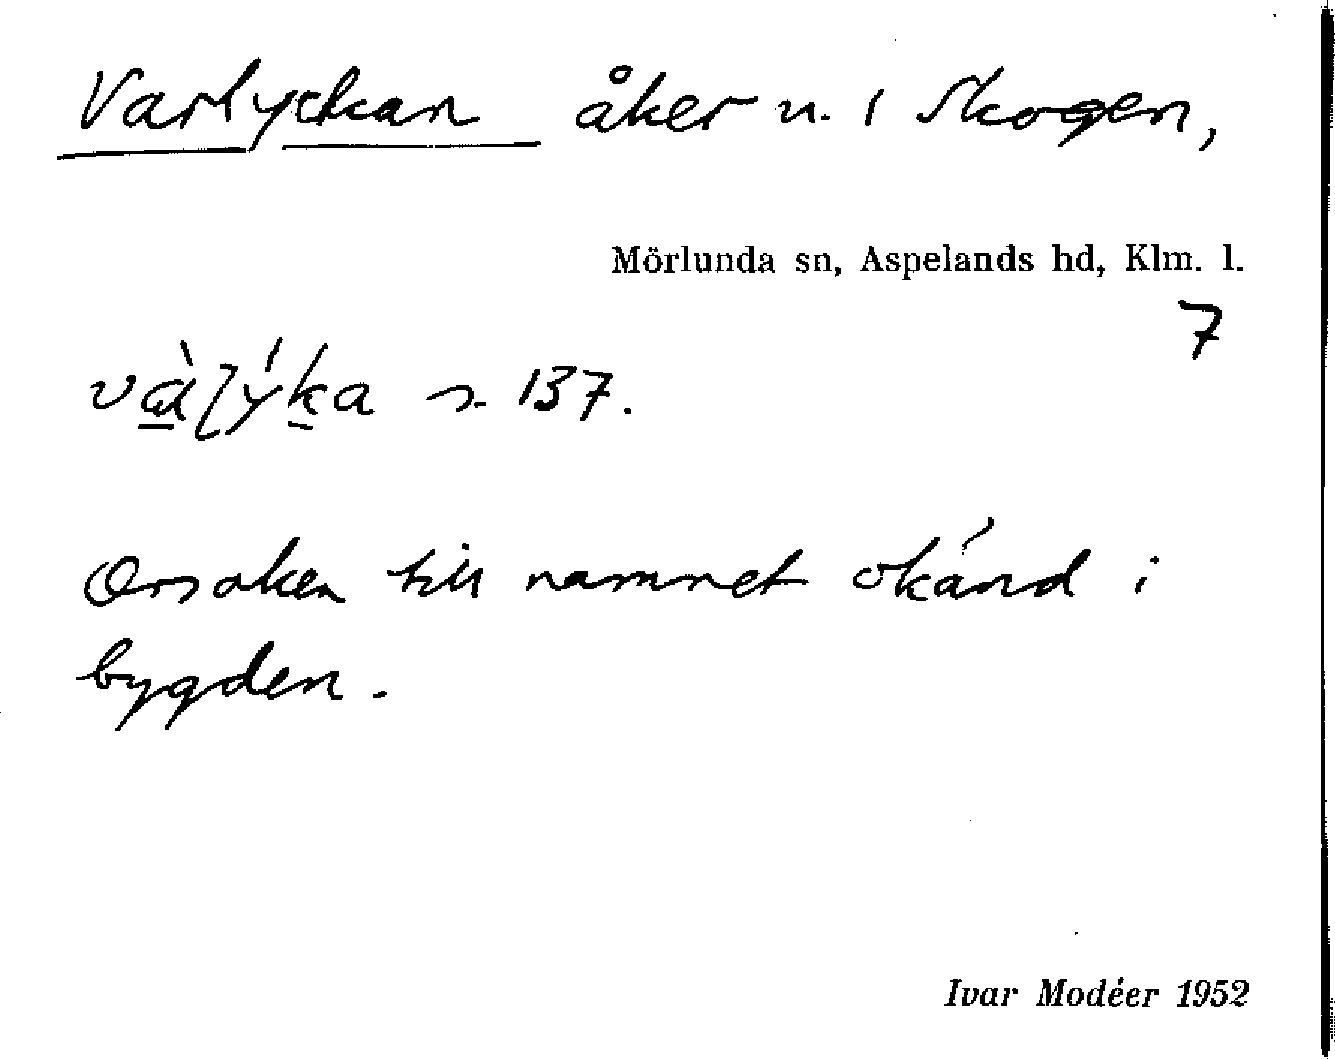 Varlyckan åker n. i Skogen,
Mörlunda sn, Aspelands hd, Klm. l.
7
s. 137.
Orsaken till namnet okänd i
bygden.
Ivar Modéer 1952